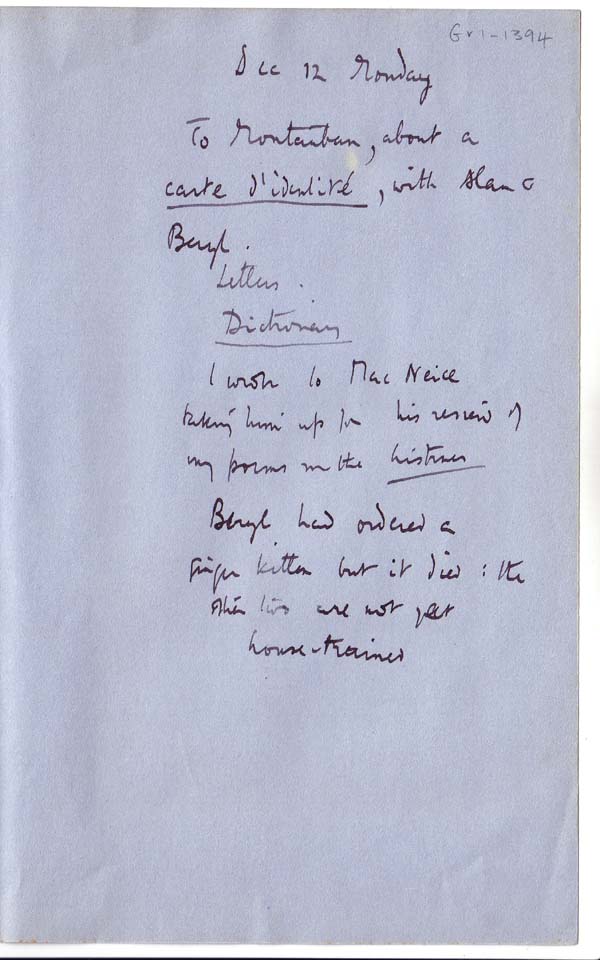 Gr1-1394
Dec 12 Monday
To Montauban, about a
carte d'identité, with Alan &
Beryl.
Letters.
Dictionary
I wrote to MacNeice
taking him up for his review of
my poems in the Listener
Beryl had ordered a
ginger kitten but it died: the
other two are not yet
house-trained